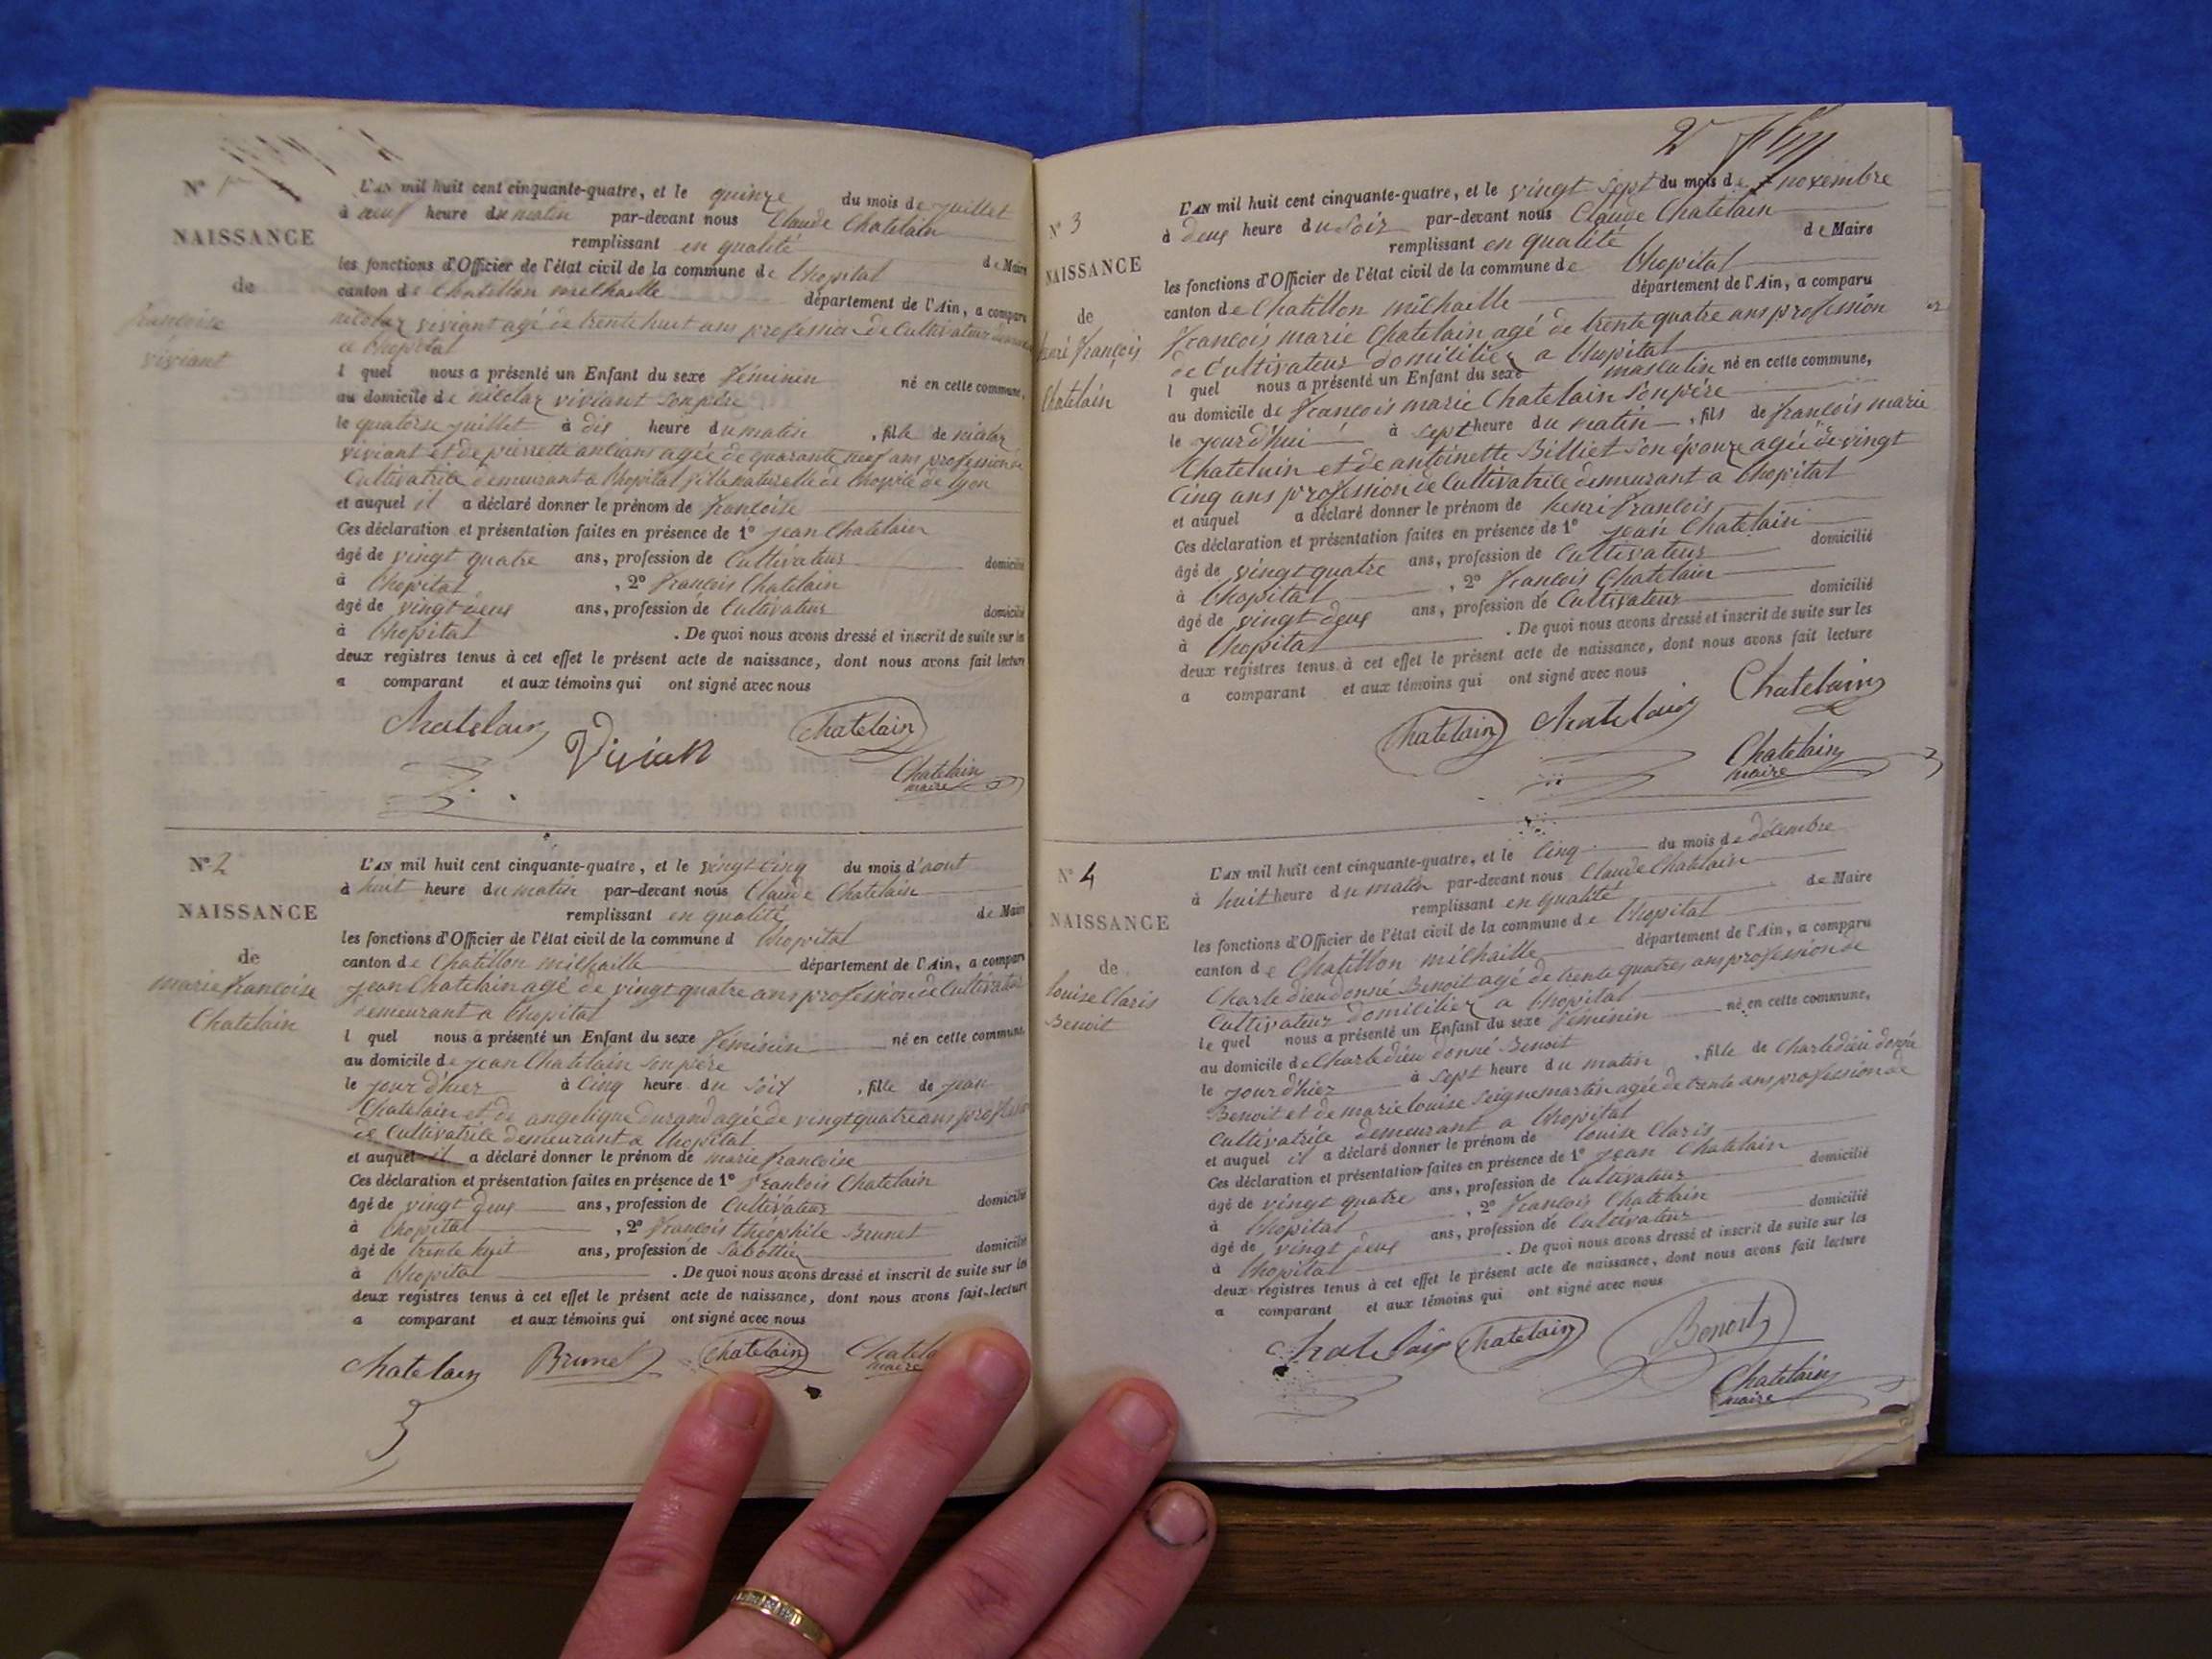 N° 1
NAISSANCE
de
françoise
viviant
L'AN mil huit cent cinquante-quatre, et le quinze du mois de juillet
à neuf heure du matin par-devant nous Claude Chatelain
remplissant en qualité de Maire
les fonctions d'Officier de l'état civil de la commune de lhopital
canton de Chatillon michaille département de l'Ain, a comparu
nicolaz viviant agé de trente huit ans profession de Cultivateur
a lhopital
l quel nous a présenté un Enfant du sexe féminin né en cette commune,
au domicile de nicolaz viviant son père
le quatorse juillet à dix heure du matin , fille de nicolaz
viviant et de pierrette anlians agée de quarante neuf ans profession de
Cultivatrice demeurant a lhopital fille naturelle de lhopile de lyon
et auquel il a déclaré donner le prénom de françoise
Ces déclaration et présentation faites en présence de 1° jean Chatelain
âgé de vingt quatre ans, profession de Cultivateur domicilié
à lhopital , 2° francois Chatelain
âgé de vingt deux ans, profession de Cultivateur domicilié
à lhopital . De quoi nous avons dressé et inscrit de suite sur les
deux registres tenus à cet effet le présent acte de naissance, dont nous avons fait lecture
a comparant et aux témoins qui ont signé avec nous
Chatelain Vivian Chatelain
Chatelain
maire
N° 2
NAISSANCE
de
marie françoise
Chatelain
L'AN mil huit cent cinquante-quatre, et le vingt cinq du mois d'aout
à huit heure du matin par-devant nous Claude Chatelain
remplissant en qualité de Maire
les fonctions d'Officier de l'état civil de la commune d lhopital
canton de Chatillon michaille département de l'Ain, a comparu
jean Chatelain agé de vingt quatre ans profession de Cultivateur
demeurant a lhopital
l quel nous a présenté un Enfant du sexe féminin né en cette commune,
au domicile de jean Chatelain son père
le jour d'hier à cinq heure du soir , fille de jean
Chatelain et de angelique durand agée de vingt quatre ans profession
de Cultivatrice demeurant a lhopital
et auquel il a déclaré donner le prénom de marie françoise
Ces déclaration et présentation faites en présence de 1° francois Chatelain
âgé de vingt deux ans, profession de Cultivateur domicilié
à lhopital , 2° francois théophile Brunet
âgé de trente huit ans, profession de Sabottier domicilié
à lhopital . De quoi nous avons dressé et inscrit de suite sur les
deux registres tenus à cet effet le présent acte de naissance, dont nous avons fait lecture
a comparant et aux témoins qui ont signé avec nous
Chatelain Brunet Chatelain
maire
2
N° 3
NAISSANCE
de
henri françois
Chatelain
L'AN mil huit cent cinquante-quatre, et le vingt sept du mois de novembre
à deux heure du soir par-devant nous Claude Chatelain
remplissant en qualité de Maire
les fonctions d'Officier de l'état civil de la commune de lhopital
canton de Chatillon michaille département de l'Ain, a comparu
francois marie Chatelain agé de trente quatre ans profession
de Cultivateur domicilier a lhopital
l quel nous a présenté un Enfant du sexe masculin né en cette commune,
au domicile de francois marie Chatelain son père
le jour d'hui à sept heure du matin , fils de francois marie
Chatelain et de antoinette Billiet son épouze agée de vingt
cinq ans profession de Cultivatrice demeurant a lhopital
et auquel a déclaré donner le prénom de henri francois
Ces déclaration et présentation faites en présence de 1° jean Chatelain
âgé de vingt quatre ans, profession de Cultivateur domicilié
à lhopital , 2° francois Chatelain
âgé de vingt deux ans, profession de Cultivateur domicilié
à lhopital . De quoi nous avons dressé et inscrit de suite sur les
deux registres tenus à cet effet le présent acte de naissance, dont nous avons fait lecture
a comparant et aux témoins qui ont signé avec nous
Chatelain Chatelain Chatelain
Chatelain
maire
N° 4
NAISSANCE
de
louise Claris
Benoit
L'AN mil huit cent cinquante-quatre, et le cinq du mois de décembre
à huit heure du matin par-devant nous Claude Chatelain
remplissant en qualité de Maire
les fonctions d'Officier de l'état civil de la commune de lhopital
canton de Chatillon michaille département de l'Ain, a comparu
Charle dieudonné Benoit agé de trente quatres ans profession de
Cultivateur domicilier a lhopital
le quel nous a présenté un Enfant du sexe féminin né en cette commune,
au domicile de Charle dieu donné Benoit
le jour d'hier à sept heure du matin , fille de Charle dieu donné
Benoit et de marie louise Seignemartin agée de trente ans profession de
Cultivatrice demeurant a lhopital
et auquel il a déclaré donner le prénom de louise Claris
Ces déclaration et présentation faites en présence de 1° jean Chatelain
âgé de vingt quatre ans, profession de Cultivateur domicilié
à lhopital , 2° francois Chatelain
âgé de vingt deux ans, profession de Cultivateur domicilié
à lhopital . De quoi nous avons dressé et inscrit de suite sur les
deux registres tenus à cet effet le présent acte de naissance, dont nous avons fait lecture
a comparant et aux témoins qui ont signé avec nous
Chatelain Chatelain Benoit
Chatelain
maire